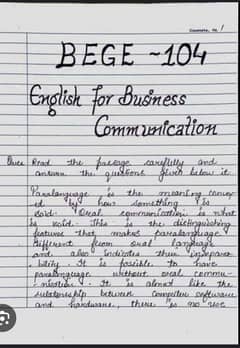 BEGE - 104
English for Business
Communication
Ques Read the passage carefully and
answer the questions given below it.
Paralanguage is the meaning convey
ed by how something is
said. Oral communication is what
is said. This is the distinguishing
features that makes paralanguage
different from oral language
and also indicates their insepara-
bility. It is possible to have
paralanguage without oral commu-
nication. It is almost like the
relationship between computer software
and hardware, there is no use